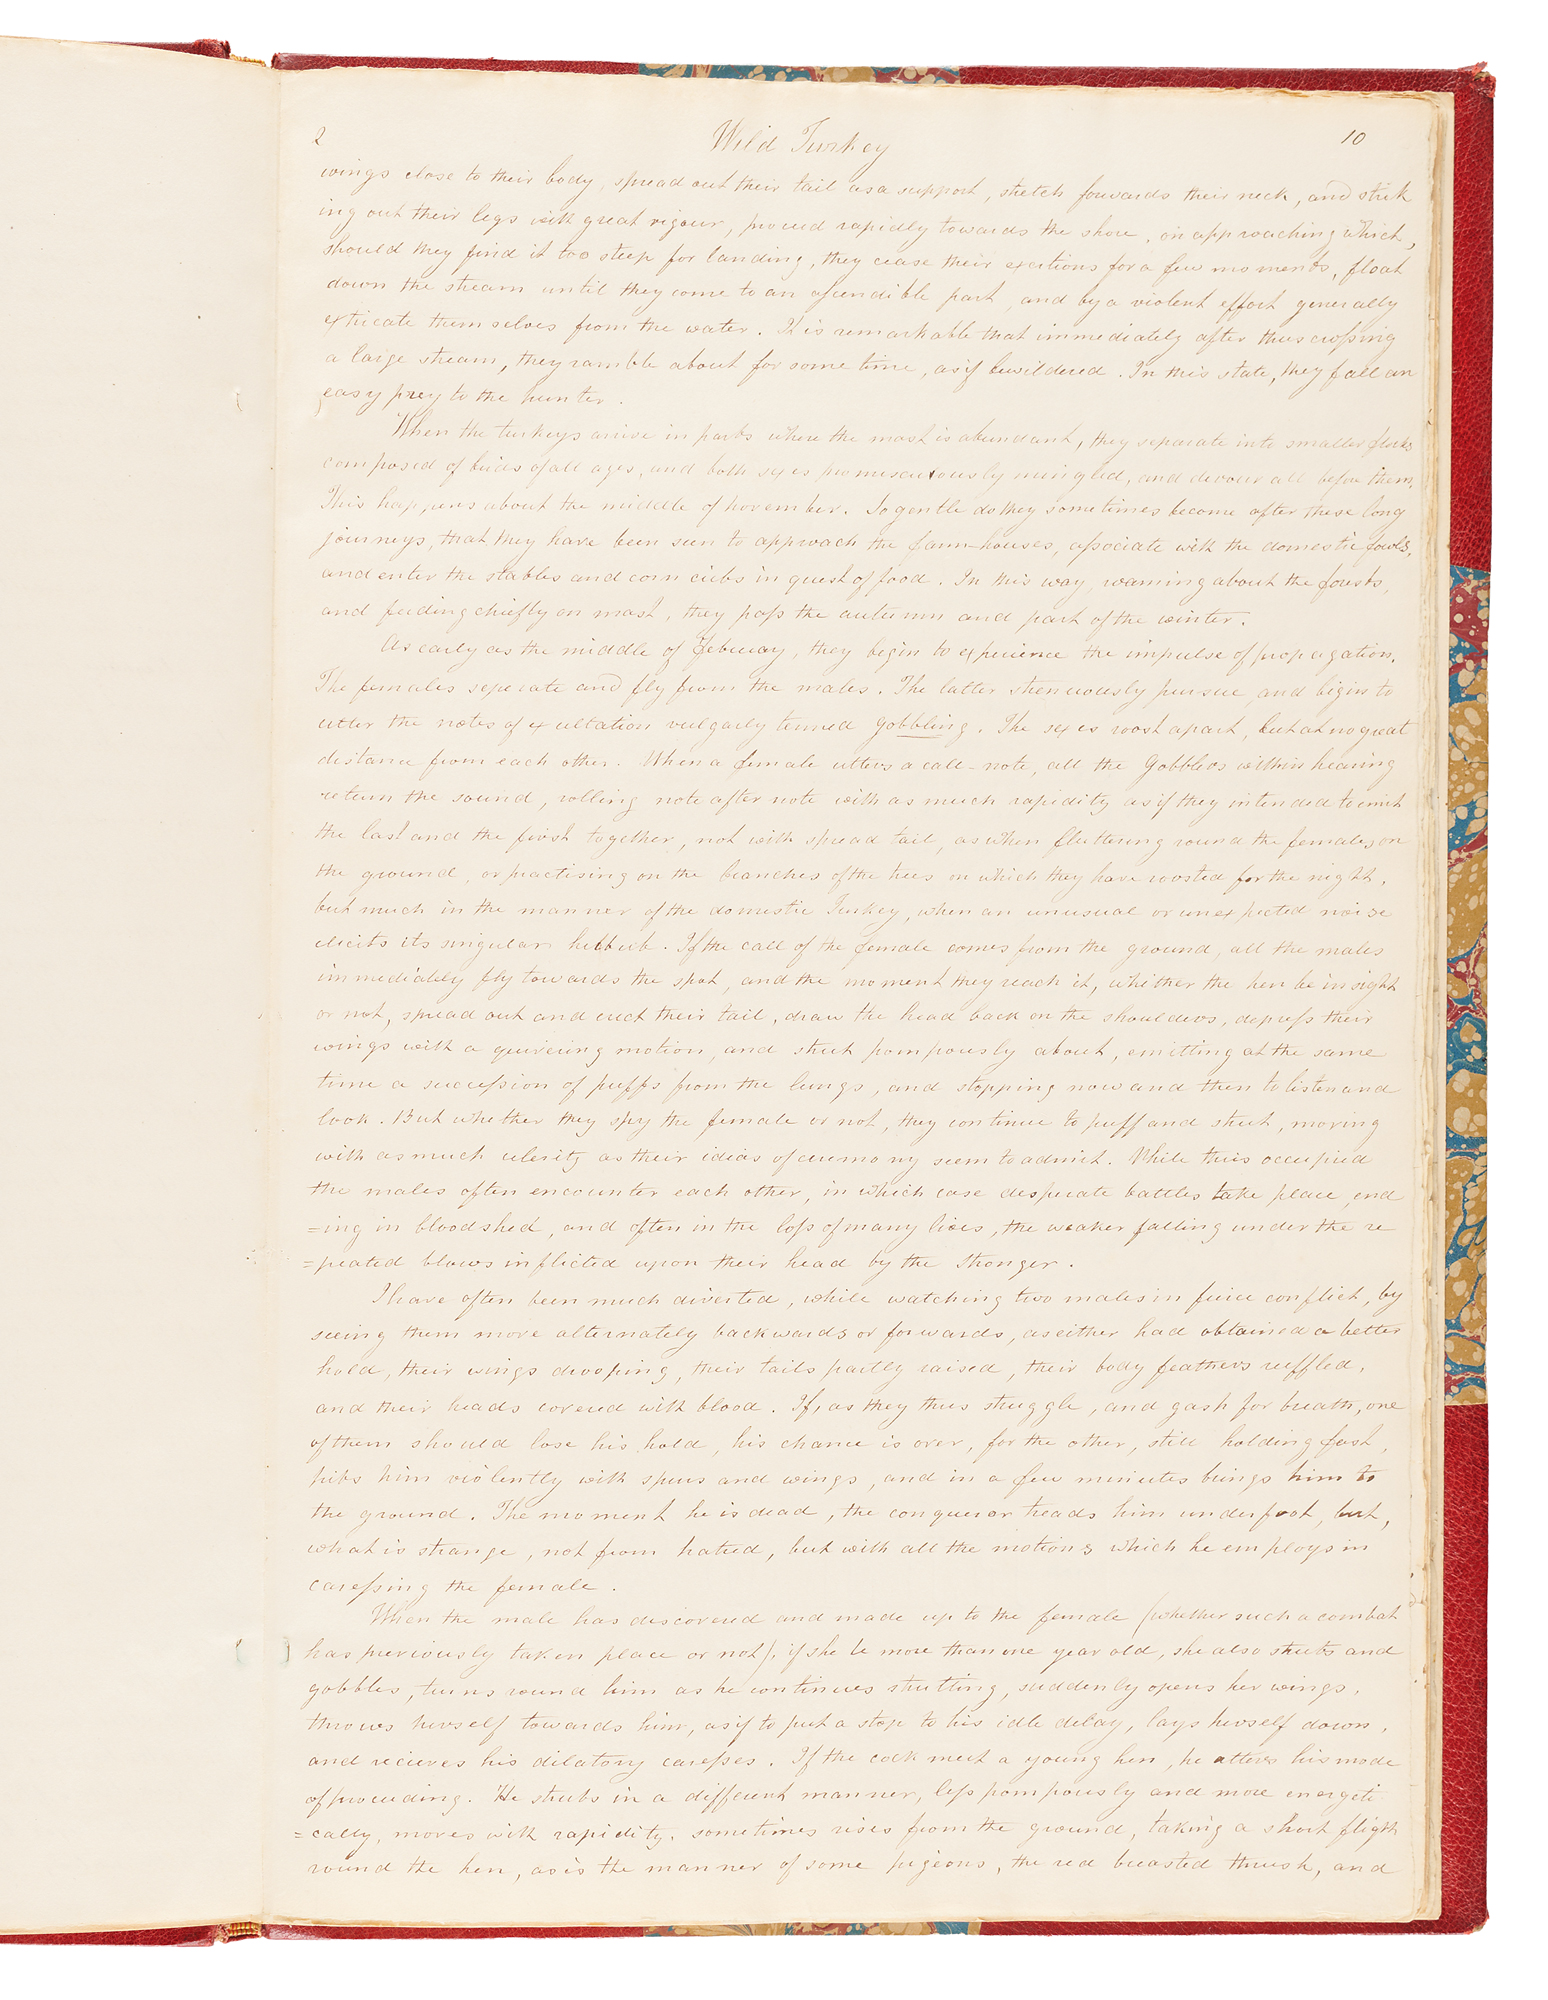 2 Wild Turkey 10
wings close to their body, spread out their tail as a support, stretch forwards their neck, and strik
ing out their legs with great vigour, proceed rapidly towards the shore, on approaching which,
should they find it too steep for landing, they cease their exertions for a few moments, float
down the stream until they come to an ascendible part, and by a violent effort generally
extricate themselves from the water. It is remarkable that immediately after thus crossing
a large stream, they ramble about for some time, as if bewildered. In this state, they fall an
easy prey to the hunter.
When the turkeys arrive in parts where the mast is abundant, they separate into smaller flocks
composed of birds of all ages, and both sexes promiscuously mingled, and devour all before them.
This happens about the middle of november. So gentle do they sometimes become after these long
journeys, that they have been seen to approach the farm-houses, associate with the domestic fowls,
and enter the stables and corn cribs in quest of food. In this way, roaming about the forests,
and feeding chiefly on mast, they pass the autumn and part of the winter.
As early as the middle of february, they begin to experience the impulse of propagation.
The females seperate and fly from the males. The latter strenuously pursue, and begin to
utter the notes of exultation vulgarly termed gobbling. The sexes roost apart, but at no great
distance from each other. When a female utters a call-note, all the Gobblers within hearing
return the sound, rolling note after note with as much rapidity as if they intended to emit
the last and the first together, not with spread tail, as when fluttering round the females on
the ground, or practising on the branches of the trees on which they have roosted for the night,
but much in the manner of the domestic Turkey, when an unusual or unexpected noise
elicits its singular hubbub. If the call of the female comes from the ground, all the males
immediately fly towards the spot, and the moment they reach it, whether the hen be in sight
or not, spread out and erect their tail, draw the head back on the shoulders, depress their
wings with a quivering motion, and strut pompously about, emitting at the same
time a succession of puffs from the lungs, and stopping now and then to listen and
look. But whether they spy the female or not, they continue to puff and strut, moving
with as much celerity as their ideas of ceremony seem to admit. While thus occupied
the males often encounter each other, in which case desperate battles take place, end
=ing in bloodshed, and often in the loss of many lives, the weaker falling under the re
=peated blows inflicted upon their head by the stronger.
I have often been much diverted, while watching two males in fierce conflict, by
seeing them move alternately backwards or forwards, as either had obtained a better
hold, their wings drooping, their tails partly raised, their body feathers ruffled,
and their heads covered with blood. If, as they thus struggle, and gash for breath, one
of them should lose his hold, his chance is over, for the other, still holding fast,
hits him violently with spurs and wings, and in a few minutes brings him to
the ground. The moment he is dead, the conqueror treads him underfoot, but,
what is strange, not from hatred, but with all the motions which he employs in
caressing the female.
When the male has discovered and made up to the female (whether such a combat
has previously taken place or not), if she be more than one year old, she also struts and
gobbles, turns round him as he continues strutting, suddenly opens her wings,
throws herself towards him, as if to put a stop to his idle delay, lays herself down,
and recieves his dilatory caresses. If the cock meet a young hen, he alters his mode
of proceeding. He struts in a different manner, less pompously and more energeti
=cally, moves with rapidity, sometimes rises from the ground, taking a short fligth
round the hen, as is the manner of some pigeons, the red breasted thrush, and